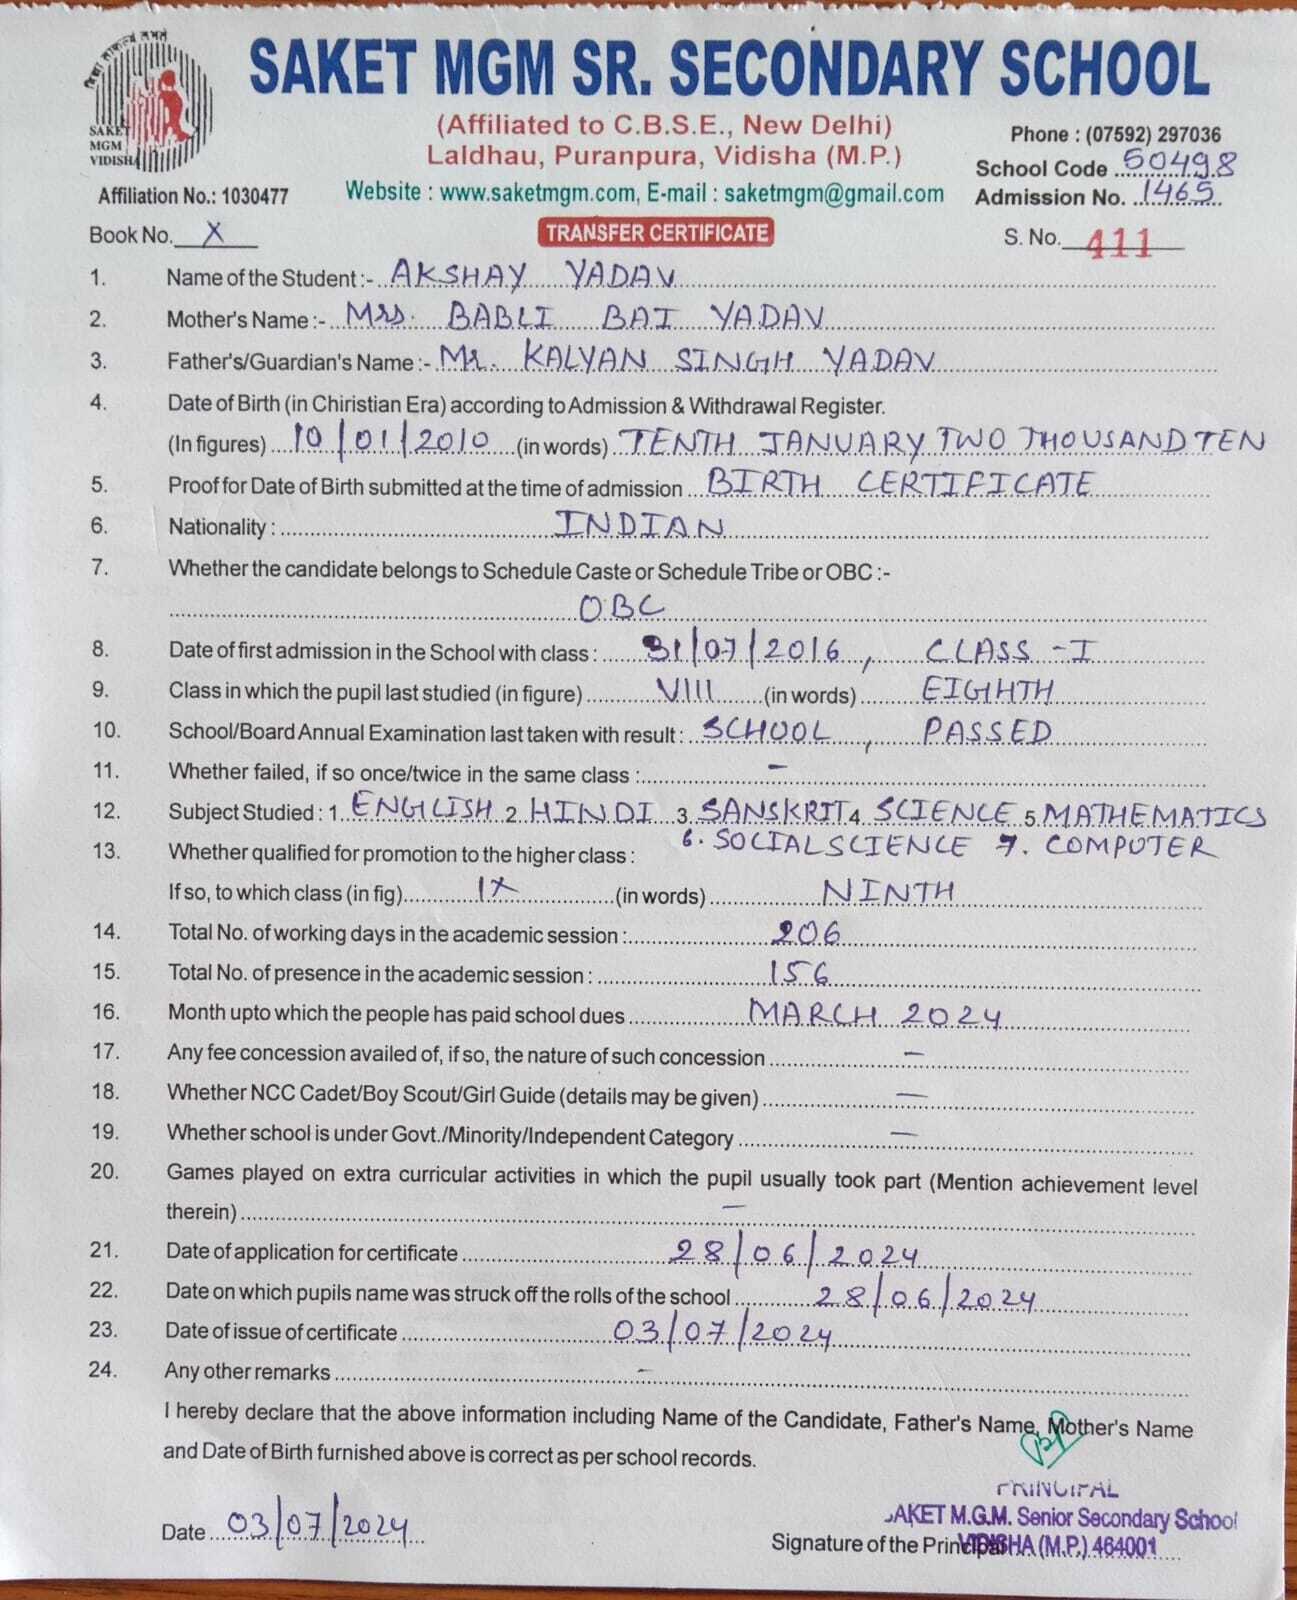 SAKET MGM SR. SECONDARY SCHOOL
(Affiliated to C.B.S.E., New Delhi)
Laldhau, Puranpura, Vidisha (M.P.)
SAKET
MGM
VIDISHA
Phone : (07592) 297036
School Code ..50498
Affiliation No.: 1030477
Website : www.saketmgm.com, E-mail : saketmgm@gmail.com
Admission No. ..1465
Book No. X
TRANSFER CERTIFICATE
S. No. 411
1. Name of the Student :- AKSHAY YADAV
2. Mother's Name :- Mrs. BABLI BAI YADAV
3. Father's/Guardian's Name :- Mr. KALYAN SINGH YADAV
4. Date of Birth (in Chiristian Era) according to Admission & Withdrawal Register.
(In figures) 10/01/2010 (in words) TENTH JANUARY TWO THOUSAND TEN
5. Proof for Date of Birth submitted at the time of admission BIRTH CERTIFICATE
6. Nationality : INDIAN
7. Whether the candidate belongs to Schedule Caste or Schedule Tribe or OBC :-
OBC
8. Date of first admission in the School with class : 31/07/2016, CLASS -I
9. Class in which the pupil last studied (in figure) VIII (in words) EIGHTH
10. School/Board Annual Examination last taken with result : SCHOOL, PASSED
11. Whether failed, if so once/twice in the same class : -
12. Subject Studied : 1 ENGLISH 2 HINDI 3 SANSKRIT 4 SCIENCE 5 MATHEMATICS
6. SOCIAL SCIENCE 7. COMPUTER
13. Whether qualified for promotion to the higher class :
If so, to which class (in fig) IX (in words) NINTH
14. Total No. of working days in the academic session : 206
15. Total No. of presence in the academic session : 156
16. Month upto which the people has paid school dues MARCH 2024
17. Any fee concession availed of, if so, the nature of such concession —
18. Whether NCC Cadet/Boy Scout/Girl Guide (details may be given) —
19. Whether school is under Govt./Minority/Independent Category —
20. Games played on extra curricular activities in which the pupil usually took part (Mention achievement level
therein) —
21. Date of application for certificate 28/06/2024
22. Date on which pupils name was struck off the rolls of the school 28/06/2024
23. Date of issue of certificate 03/07/2024
24. Any other remarks -
I hereby declare that the above information including Name of the Candidate, Father's Name, Mother's Name
and Date of Birth furnished above is correct as per school records.
PRINCIPAL
AKET M.G.M. Senior Secondary School
VIDISHA (M.P.) 464001
Date 03/07/2024
Signature of the Principal